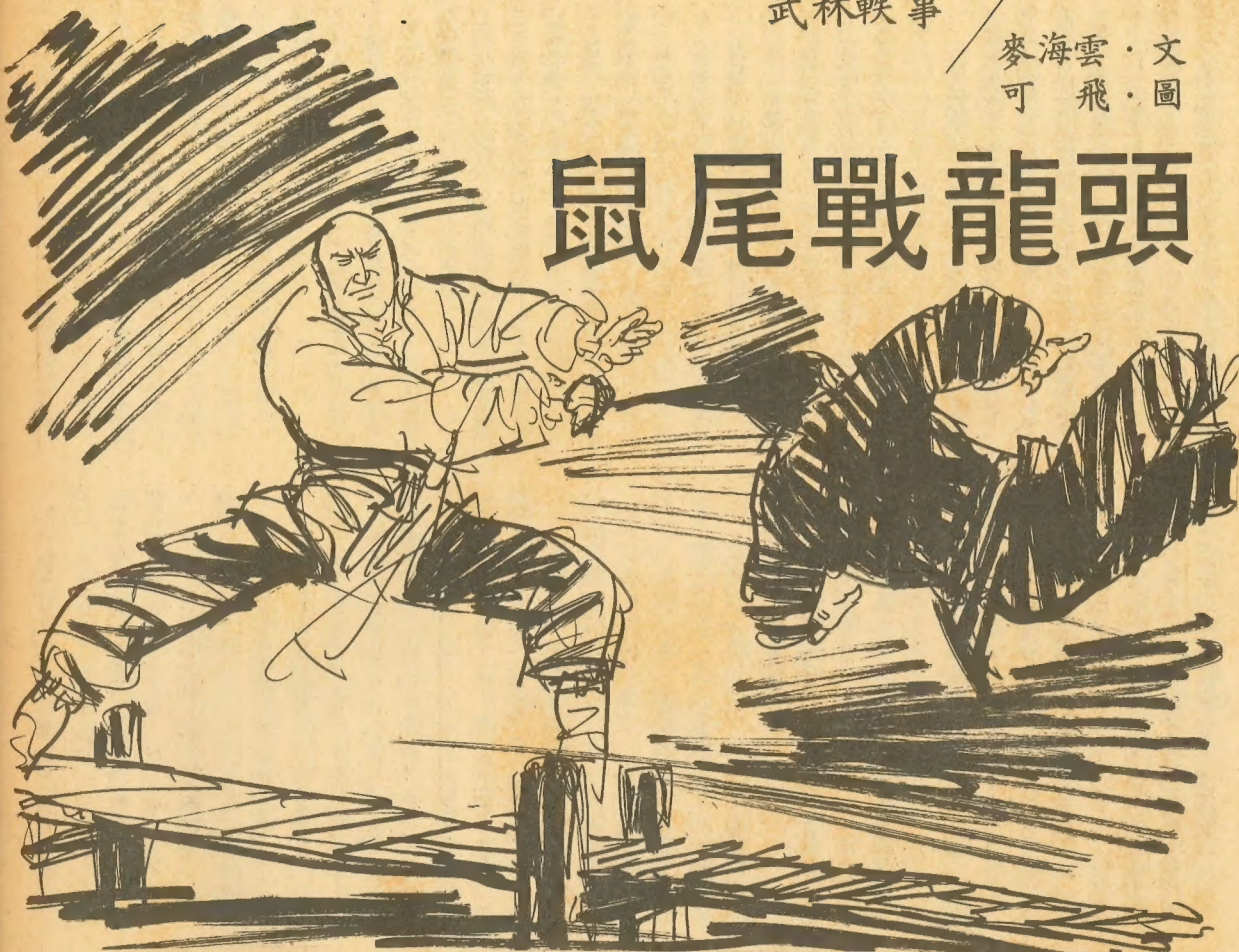 武林軼事
麥海雲·文
可 飛·圖
鼠尾戰龍頭